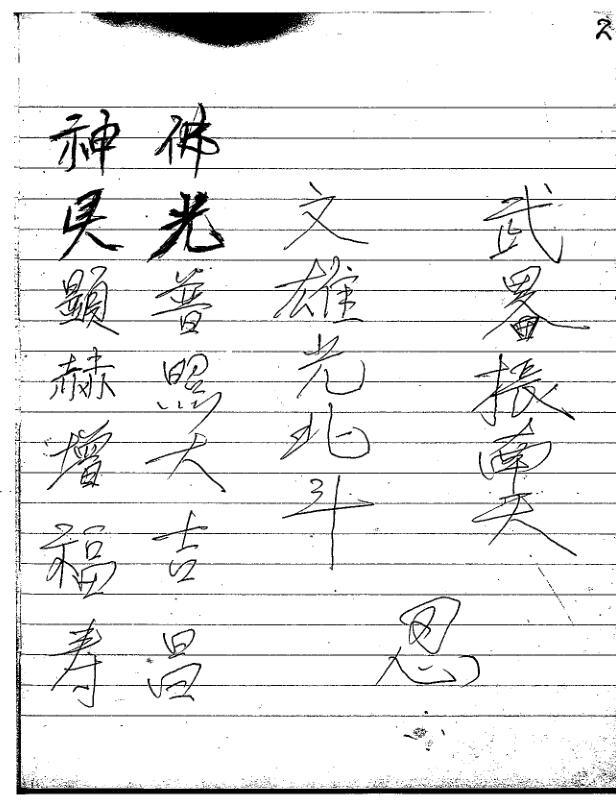 2
武畧振南天
忍
文雄光北斗
佛光普照大吉昌
神顯赫增福寿